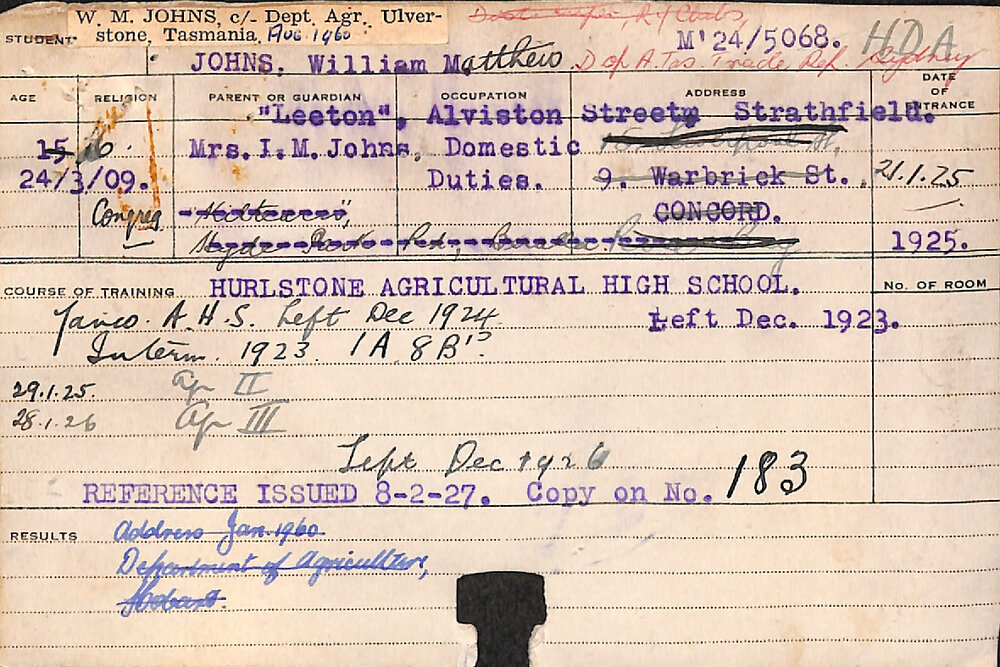 W. M. JOHNS, c/- Dept. Agr. Ulver-
stone, Tasmania, Aug. 1960
M'24/5068. HDA
STUDENT
JOHNS, William Matthew Dep A. Tas. Trade Ref. Sydney
AGE RELIGION PARENT OR GUARDIAN OCCUPATION ADDRESS DATE OF ENTRANCE
"Leeton", Alviston Street, Strathfield.
15 Mrs. I. M. Johns, Domestic
24/3/09. Duties. 9. Warbrick St., 21.1.25
Congreg CONCORD.
1925.
COURSE OF TRAINING HURLSTONE AGRICULTURAL HIGH SCHOOL. No. OF ROOM
Yanco. A.H.S. Left Dec 1924. Left Dec. 1923.
Interm. 1923. 1A 8B's.
29.1.25. Ag II
28.1.26 Ag III
Left Dec 1926
REFERENCE ISSUED 8-2-27. Copy on No. 183
RESULTS Address Jan. 1960.
Department of Agriculture,
Hobart.